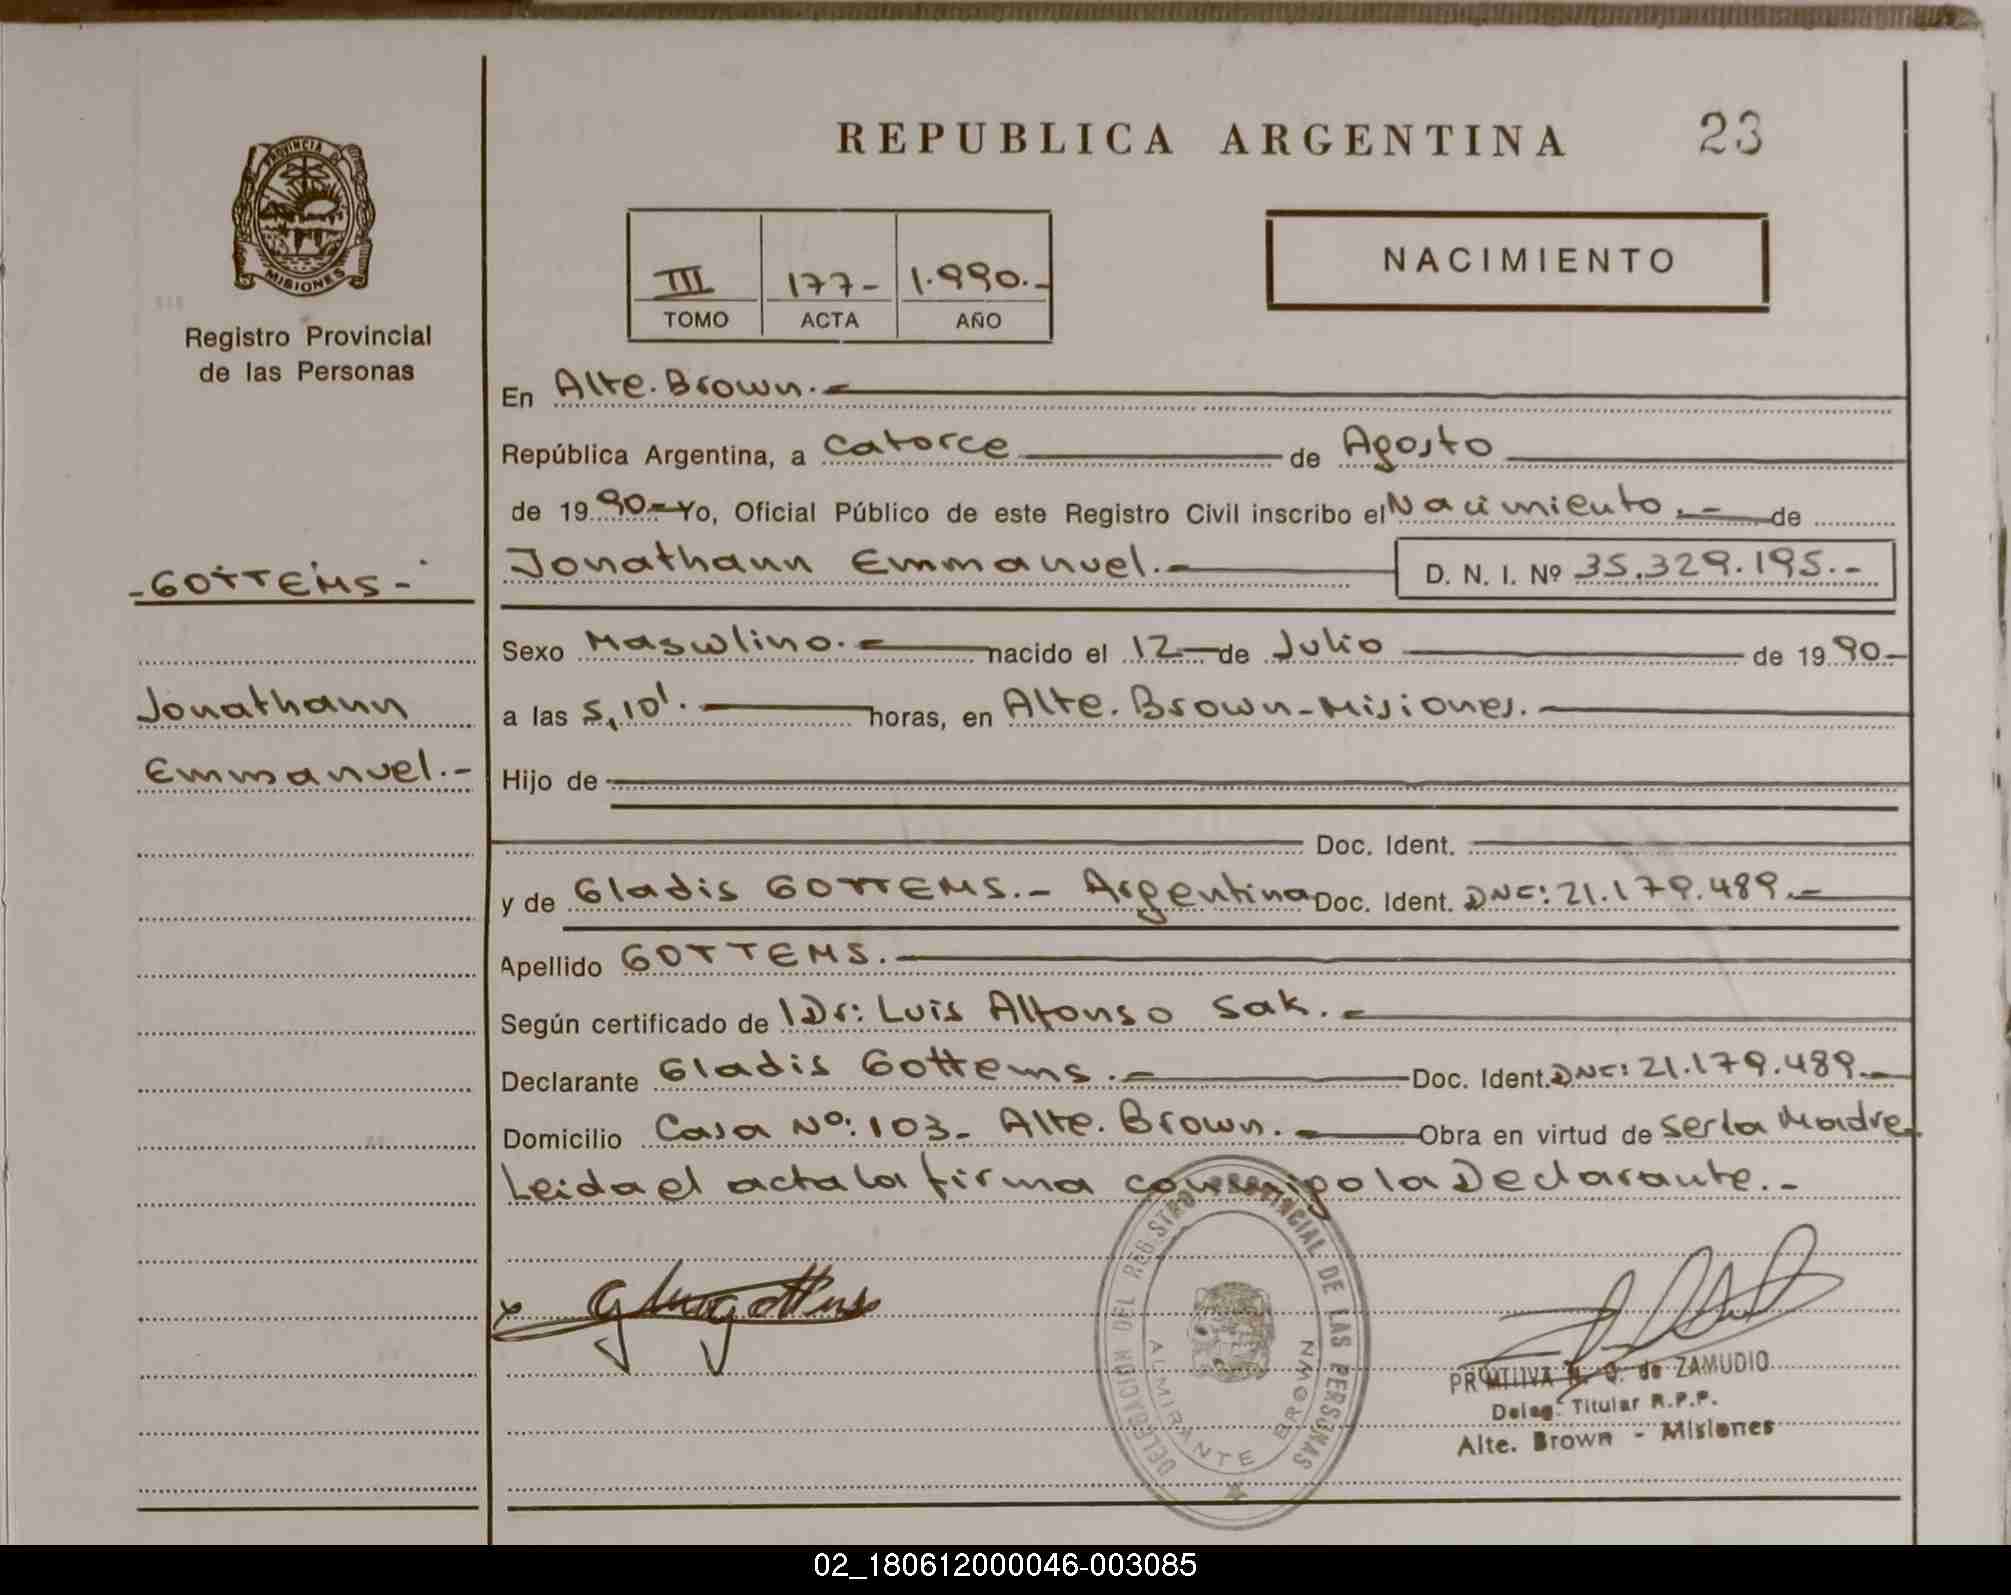 REPUBLICA ARGENTINA 23
PROVINCIA DE MISIONES
Registro Provincial
de las Personas
NACIMIENTO
III 177- 1.990.-
TOMO ACTA AÑO
En Alte. Brown.-
República Argentina, a catorce de Agosto
de 1990.- Yo, Oficial Público de este Registro Civil inscribo el Nacimiento.- de
Jonathann Emmanuel.- D. N. I. Nº 35.329.195.-
Sexo Masculino.- nacido el 12 de Julio de 1990-
a las 5,10'. horas, en Alte. Brown-Misiones.-
Hijo de
Doc. Ident.
y de Gladis GOTTEMS.- Argentina Doc. Ident. DNI: 21.179.489.-
Apellido GOTTEMS.-
Según certificado de Dr: Luis Alfonso Sak.-
Declarante Gladis Gottems.- Doc. Ident. DNI: 21.179.489.-
Domicilio Casa Nº: 103- Alte. Brown.- Obra en virtud de ser la Madre
Leida el acta la firma conmigo la Declarante.-
-GOTTEMS-
Jonathann
Emmanuel.-
DELEGACION DEL REGISTRO PROVINCIAL DE LAS PERSONAS
ALMIRANTE BROWN
PRIMITIVA N. O. de ZAMUDIO
Deleg. Titular R.P.P.
Alte. Brown - Misiones
02_180612000046-003085